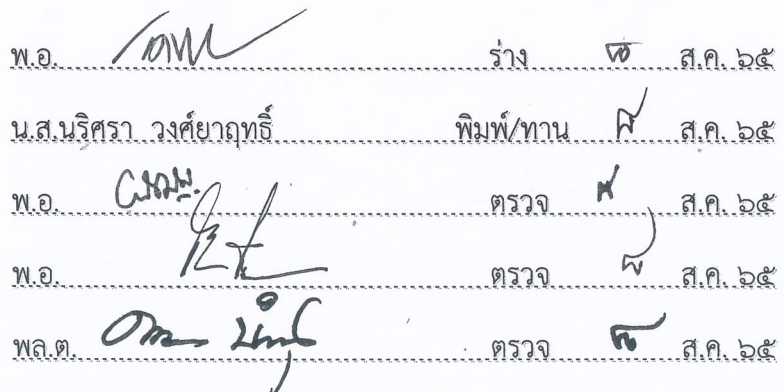 พ.อ. ร่าง ๘ ส.ค. ๖๕
น.ส.นริศรา วงศ์ยาฤทธิ์ พิมพ์/ทาน ๘ ส.ค. ๖๕
พ.อ. ตรวจ ๘ ส.ค. ๖๕
พ.อ. ตรวจ ๘ ส.ค. ๖๕
พล.ต. ตรวจ ๘ ส.ค. ๖๕